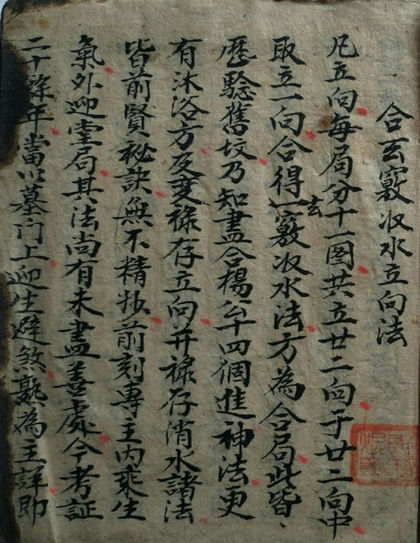 合玄竅收水立向法
凡立向每局分十一图共立廿二向于廿二向中
取立一向合得一玄竅收水法方為合局此皆
歷驗舊坟乃知盡合楊公十四個進神法更
有沐浴方及棄祿存立向并祿存消水諸法
皆前賢秘訣無不精妙前刻專主內乘生
氣外迎堂局其法尚有未盡善處今考証
二十餘年當以墓门上迎生避煞熟為主詳即